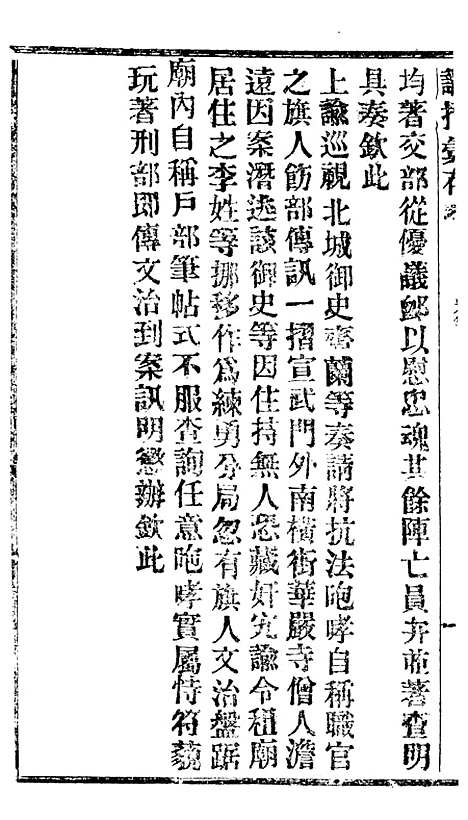 諭摺彙存
均著交部從優議䘏以慰忠魂其餘陣亡員弁並著查明
具奏欽此
上諭巡視北城御史齊蘭等奏請將抗法咆哮自稱職官
之旗人飭部傳訊一摺宣武門外南橫街華嚴寺僧人澹
遠因案潛逃該御史等因住持無人恐藏奸宄諭令租廟
居住之李姓等挪移作爲練勇分局忽有旗人文治盤踞
廟內自稱戶部筆帖式不服查詢任意咆哮實屬恃符藐
玩著刑部即傳文治到案訊明懲辦欽此